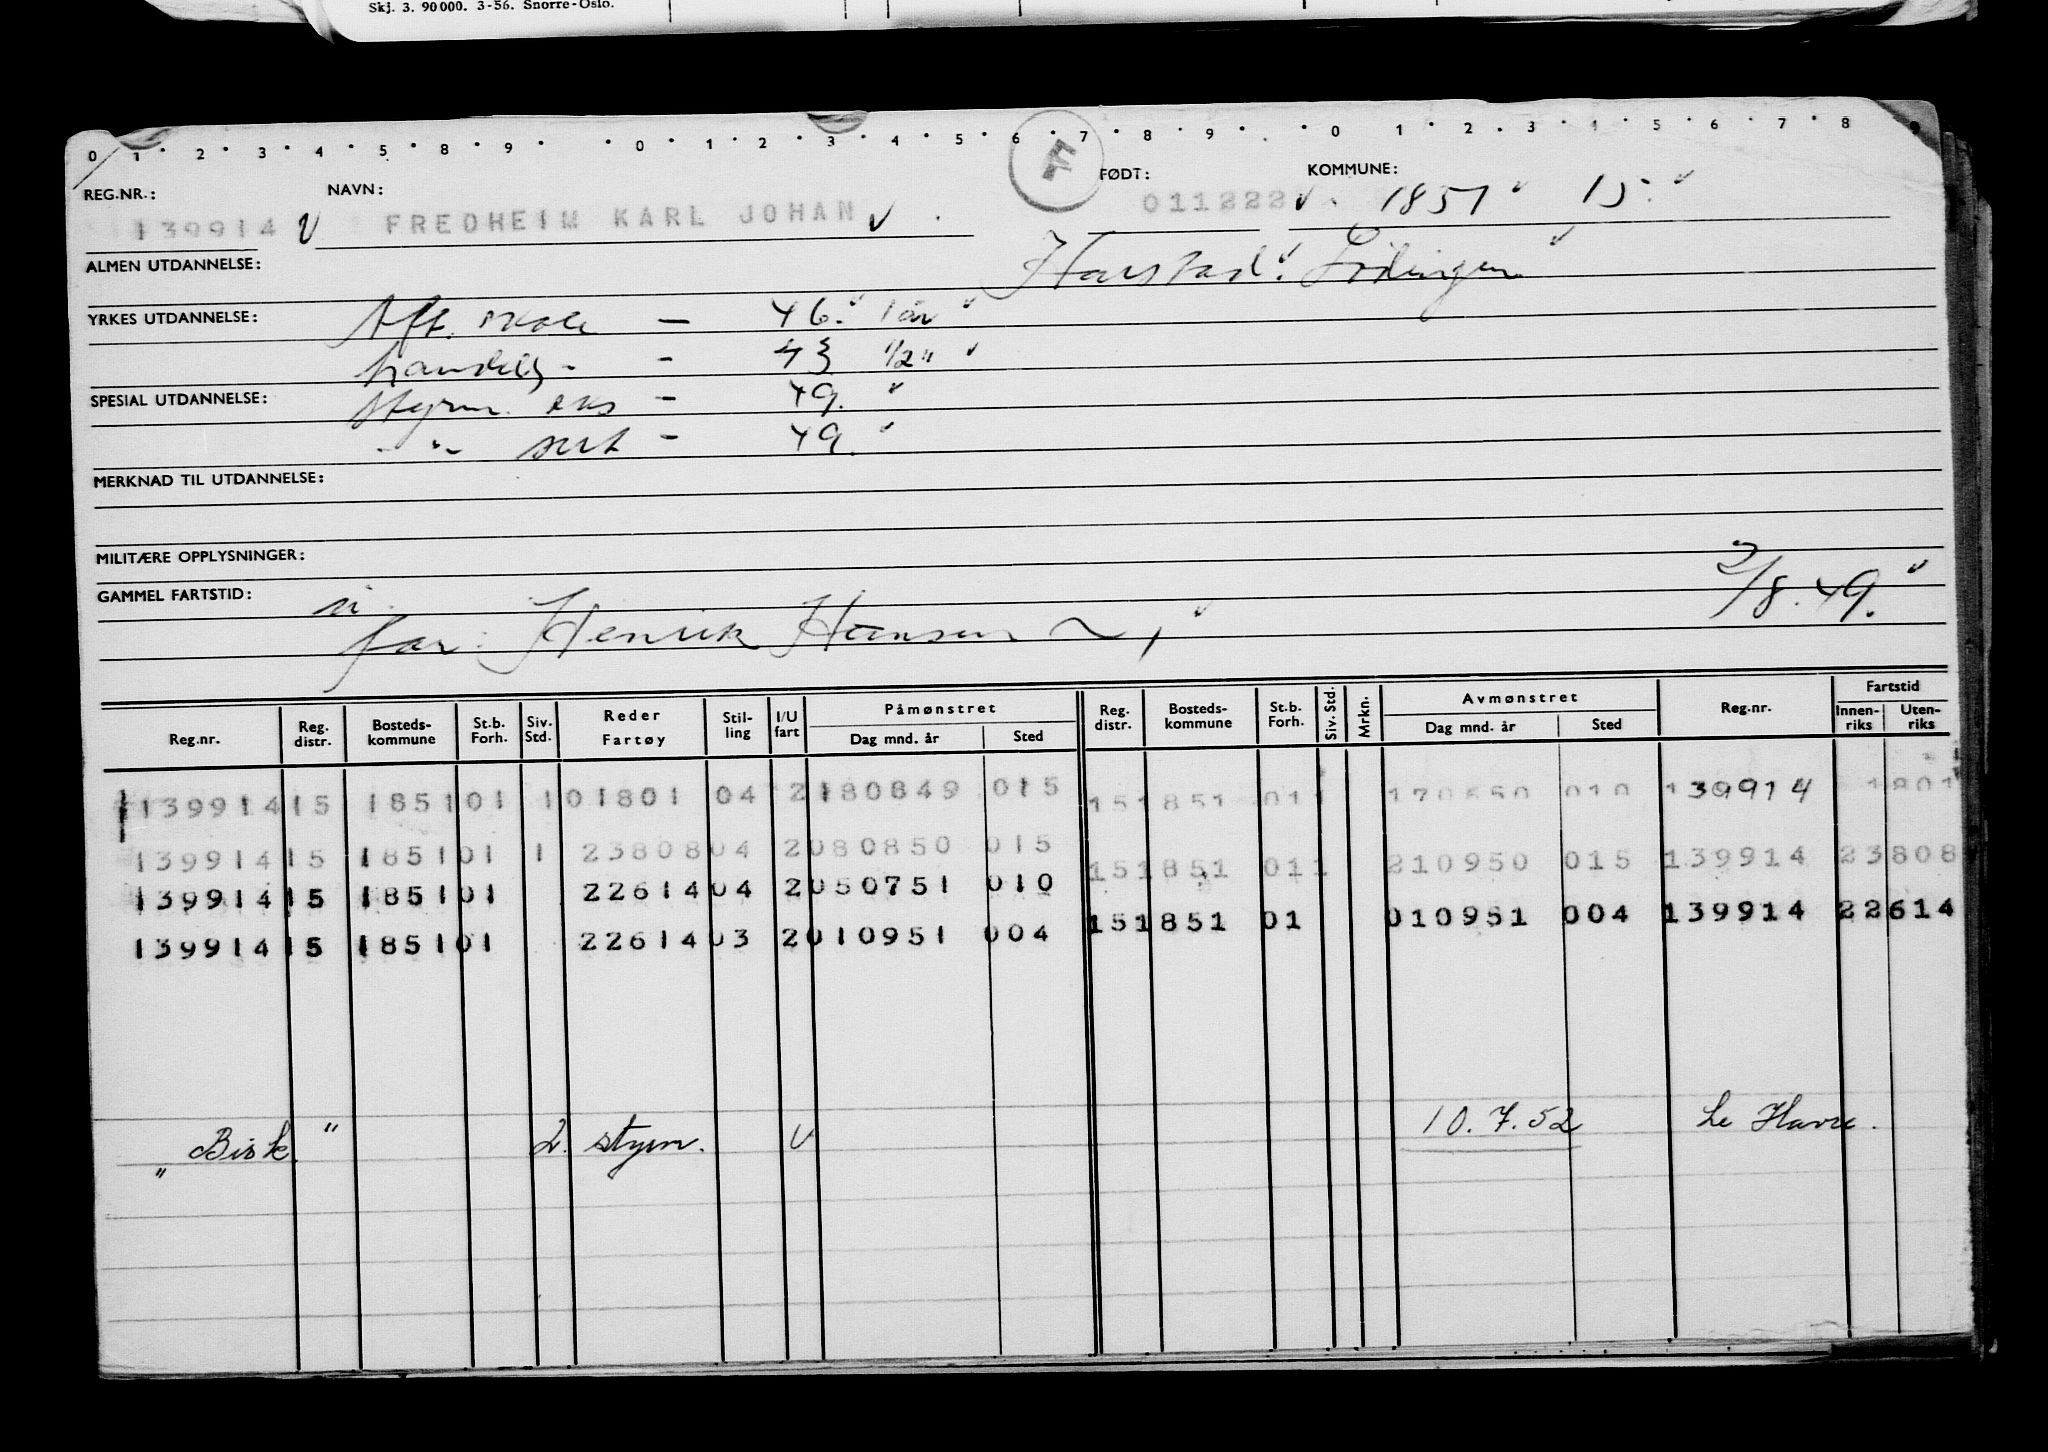 Skj. 3. 90 000. 3-56. Snorre-Oslo.
0 1 2 3 4 5 8 9 0 1 2 3 4 5 6 7 8 9 0 1 2 3 4 5 6 7 8 9
REG.NR.: NAVN: FØDT: KOMMUNE:
139914 V FREDHEIM KARL JOHAN 011222 1851 15.
ALMEN UTDANNELSE: Harstad. Lödingen
YRKES UTDANNELSE: Aft. skole — 46. 1 år
handels - - 43 1/2 "
SPESIAL UTDANNELSE: Styrm. eks - 49.
- " - sert - 49.
MERKNAD TIL UTDANNELSE:
MILITÆRE OPPLYSNINGER:
GAMMEL FARTSTID: /8.49.
far: Henrik Hansen
Reg.nr. Reg. distr. Bosteds-kommune St.b. Forh. Siv. Std. Reder Fartøy Stil-ling I/U fart Påmønstret Dag mnd. år Sted Reg. distr. Bosteds-kommune St.b. Forh. Siv. Std. Mrkn. Avmønstret Dag mnd. år Sted Reg.nr. Fartstid Innen-riks Uten-riks
139914 15 1851 01 1 01801 04 2 180849 015 15 1851 01 1 170650 010 139914 1801
139914 15 1851 01 1 23808 04 2 080850 015 15 1851 01 1 210950 015 139914 23808
139914 15 1851 01 22614 04 2 050751 010 15 1851 01 010951 004 139914 22614
139914 15 1851 01 22614 03 2 010951 004
„Bisk" 2. styrm. U 10.7.52 Le Havre.